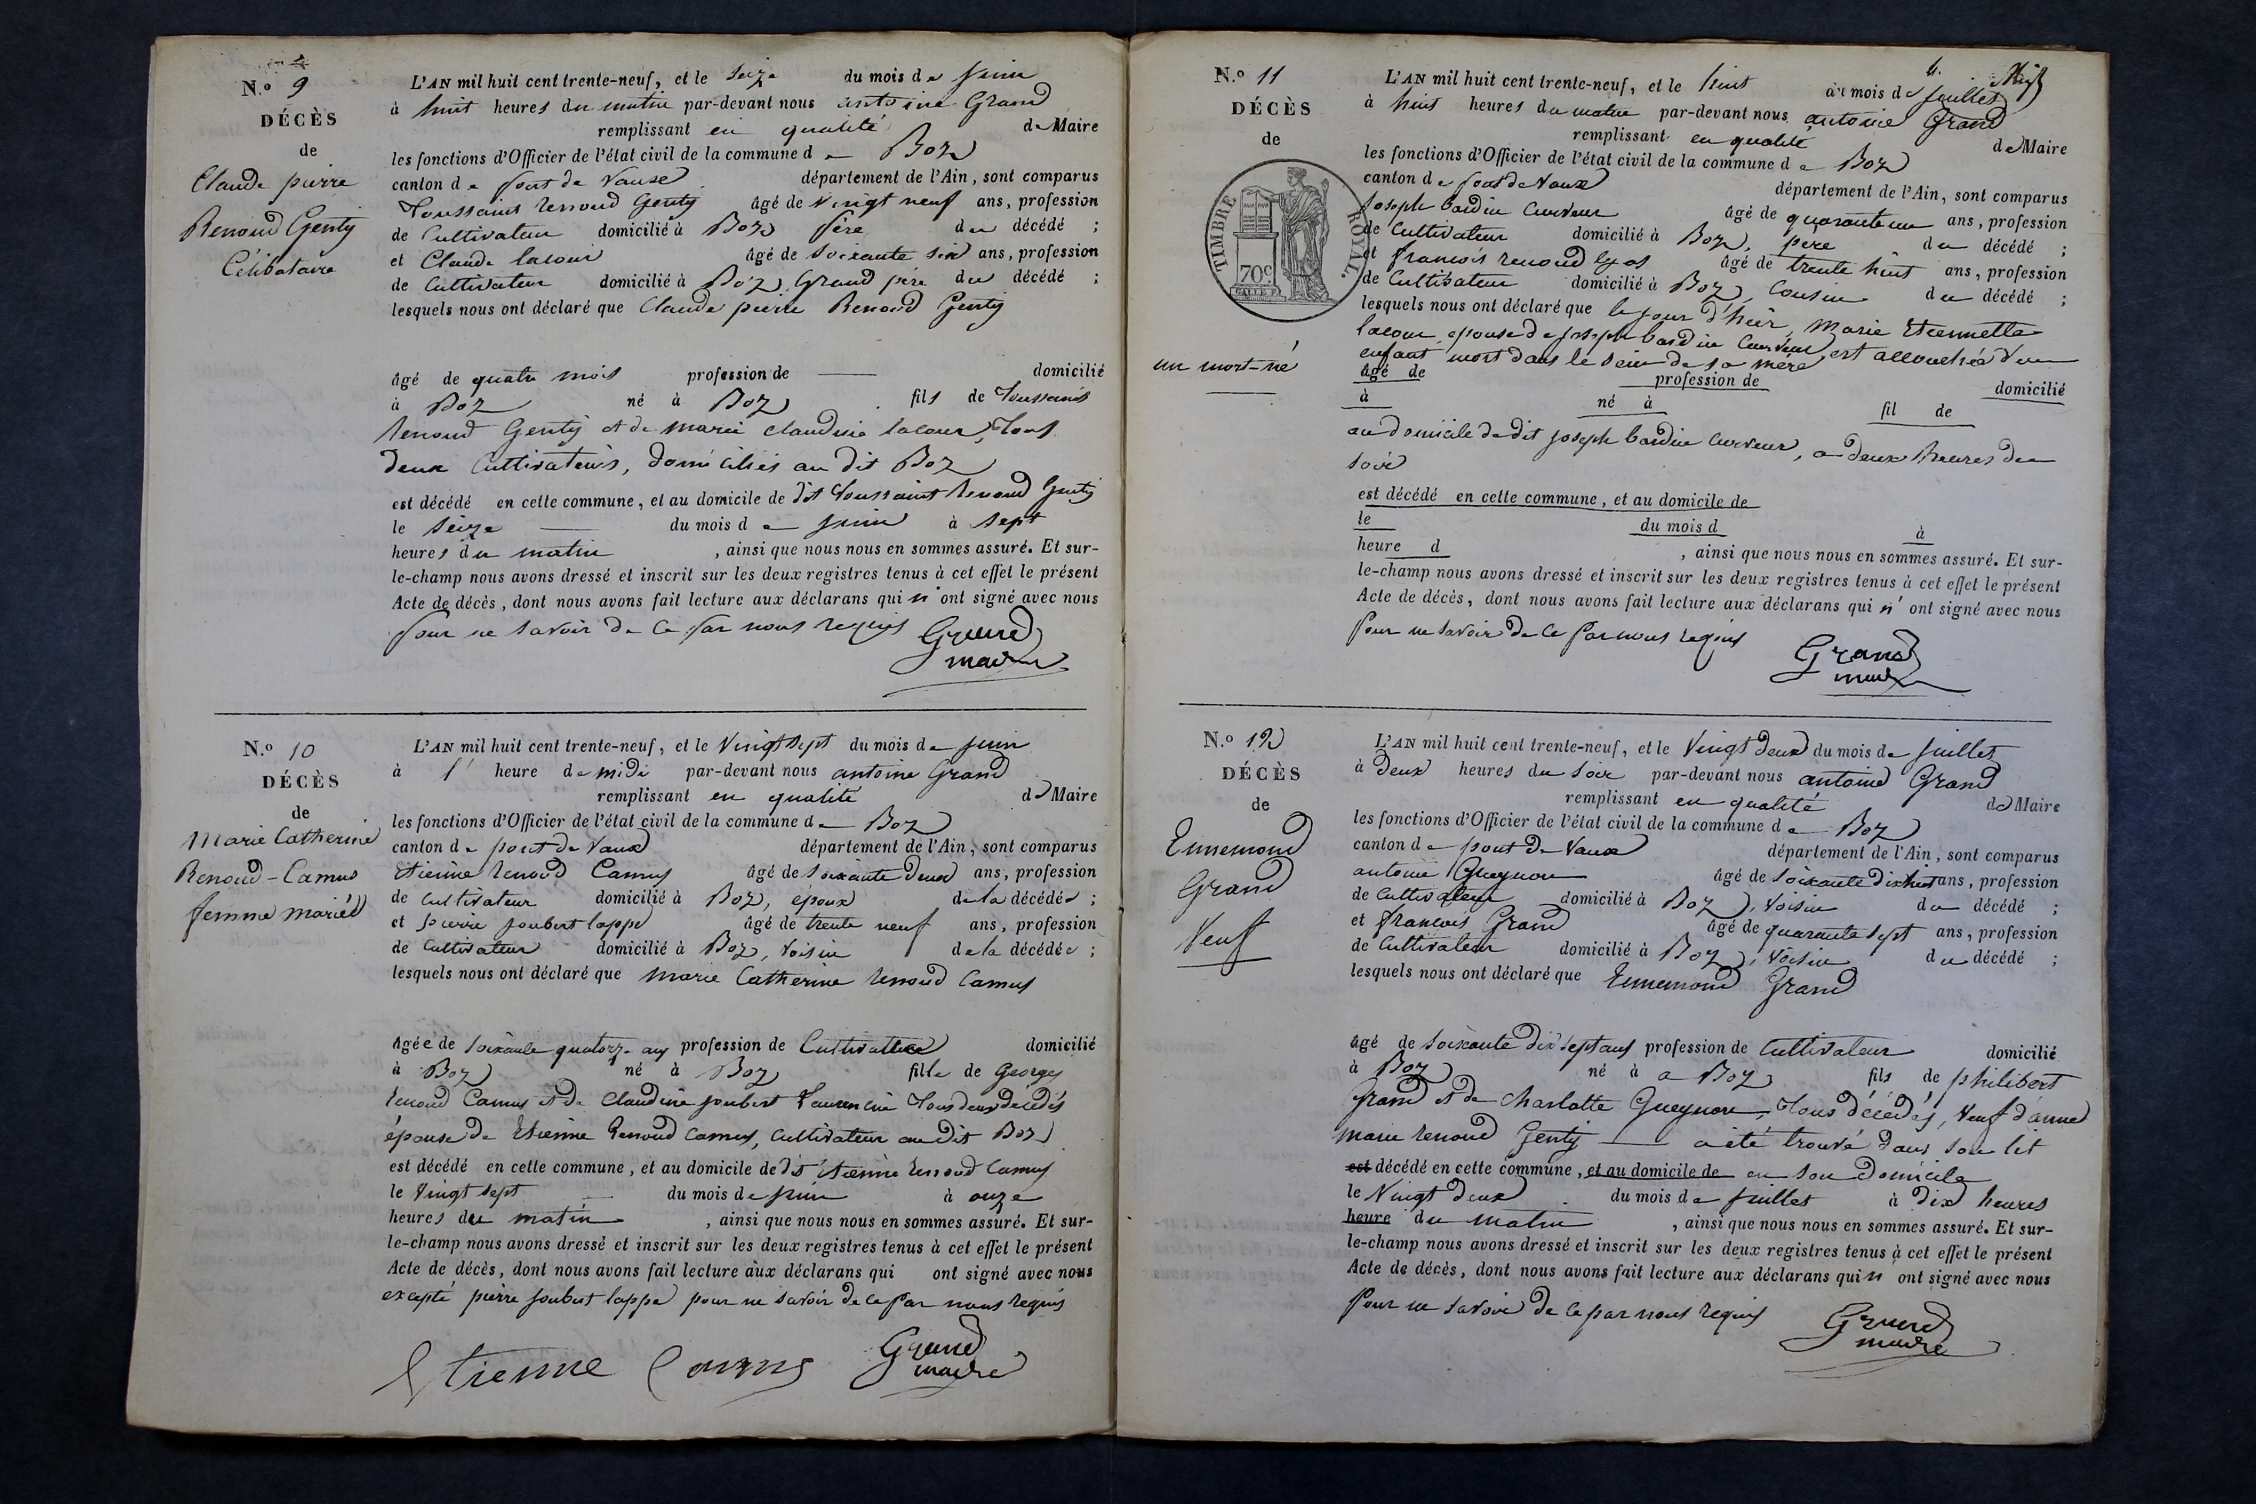 N.º 9
DÉCÈS
de
Claude pierre
Renoud Genty
Célibataire
L'AN mil huit cent trente-neuf, et le seize du mois de juin
à huit heures du matin par-devant nous antoine Grand
remplissant en qualité de Maire
les fonctions d'Officier de l'état civil de la commune de Boz
canton de pont de Vaux département de l'Ain, sont comparus
Toussaint renoud Genty âgé de vingt neuf ans, profession
de Cultivateur domicilié à Boz père du décédé ;
et Claude lacour âgé de soixante six ans, profession
de Cultivateur domicilié à Boz, Grand père du décédé ;
lesquels nous ont déclaré que Claude pierre Renoud Genty
âgé de quatre mois profession de — domicilié
à Boz né à Boz fils de Toussaint
renoud Genty et de marie claudine lacour, Tous
deux Cultivateurs, domiciliés au dit Boz
est décédé en cette commune, et au domicile de dit Toussaint renoud Genty
le seize — du mois de juin à sept
heures du matin , ainsi que nous nous en sommes assuré. Et sur-
le-champ nous avons dressé et inscrit sur les deux registres tenus à cet effet le présent
Acte de décès, dont nous avons fait lecture aux déclarans qui n'ont signé avec nous
pour ne savoir de ce par nous requis
Grand
maire
N.º 10
DÉCÈS
de
Marie Catherine
Renoud-Camus
femme mariée
L'AN mil huit cent trente-neuf, et le Vingt sept du mois de juin
à 1' heure de midi par-devant nous antoine Grand
remplissant en qualité de Maire
les fonctions d'Officier de l'état civil de la commune de Boz
canton de pont de Vaux département de l'Ain, sont comparus
Etienne renoud Camus âgé de soixante deux ans, profession
de cultivateur domicilié à Boz, époux de la décédée ;
et pierre joubert lappe âgé de trente neuf ans, profession
de Cultivateur domicilié à Boz, voisin de la décédée ;
lesquels nous ont déclaré que Marie Catherine renoud Camus
âgée de soixante quatorze ans profession de Cultivatrice domicilié
à Boz né à Boz fille de Georges
renoud Camus et de Claudine joubert Tous deux décédés
épouse de Etienne Renoud Camus, Cultivateur au dit Boz
est décédé en cette commune, et au domicile de dit Etienne renoud Camus
le Vingt sept — du mois de juin à onze
heures du matin , ainsi que nous nous en sommes assuré. Et sur-
le-champ nous avons dressé et inscrit sur les deux registres tenus à cet effet le présent
Acte de décès, dont nous avons fait lecture aux déclarans qui ont signé avec nous
excepté pierre joubert lappe pour ne savoir de ce par nous requis
Etienne Camus
Grand
maire
N.º 11
DÉCÈS
de
TIMBRE ROYAL.
70c
un mort-né
L'AN mil huit cent trente-neuf, et le huit du mois de juillet
à huit heures du matin par-devant nous antoine Grand
remplissant en qualité de Maire
les fonctions d'Officier de l'état civil de la commune de Boz
canton de pont de Vaux département de l'Ain, sont comparus
Joseph bardin Curveur âgé de quarante un ans, profession
de Cultivateur domicilié à Boz, père du décédé ;
et francois renoud âgé de trente huit ans, profession
de Cultivateur domicilié à Boz, Cousin du décédé ;
lesquels nous ont déclaré que le jour d'hier, Marie Etiennette
lacour, epouse de joseph bardin Curveur, est accouchée d'un
enfant mort dans le sein de sa mère
âgé de profession de domicilié
à né à fil de
au domicile de dit joseph bardin Curveur, a deux heures du
soir
est décédé en cette commune, et au domicile de
le du mois d à
heure d , ainsi que nous nous en sommes assuré. Et sur-
le-champ nous avons dressé et inscrit sur les deux registres tenus à cet effet le présent
Acte de décès, dont nous avons fait lecture aux déclarans qui n'ont signé avec nous
pour ne savoir de ce par nous requis
Grand
maire
N.º 12
DÉCÈS
de
Ennemond
Grand
Veuf
L'AN mil huit cent trente-neuf, et le Vingt deux du mois de juillet
à deux heures du soir par-devant nous antoine Grand
remplissant en qualité de Maire
les fonctions d'Officier de l'état civil de la commune de Boz
canton de pont de Vaux département de l'Ain, sont comparus
antoine Gueynon âgé de soixante dix huit ans, profession
de Cultivateur domicilié à Boz, voisin du décédé ;
et francois Grand âgé de quarante sept ans, profession
de Cultivateur domicilié à Boz, voisin du décédé ;
lesquels nous ont déclaré que Ennemond Grand
âgé de soixante dix sept ans profession de Cultivateur domicilié
à Boz né à a Boz fils de philibert
Grand et de Charlotte Gueynon, Tous décédés, Veuf d'anne
Marie renoud Genty — a été trouvé dans son lit
est décédé en cette commune, et au domicile de en son domicile
le Vingt deux du mois de juillet à dix heures
heure du matin , ainsi que nous nous en sommes assuré. Et sur-
le-champ nous avons dressé et inscrit sur les deux registres tenus à cet effet le présent
Acte de décès, dont nous avons fait lecture aux déclarans qui n ont signé avec nous
pour ne savoir de ce par nous requis
Grand
maire